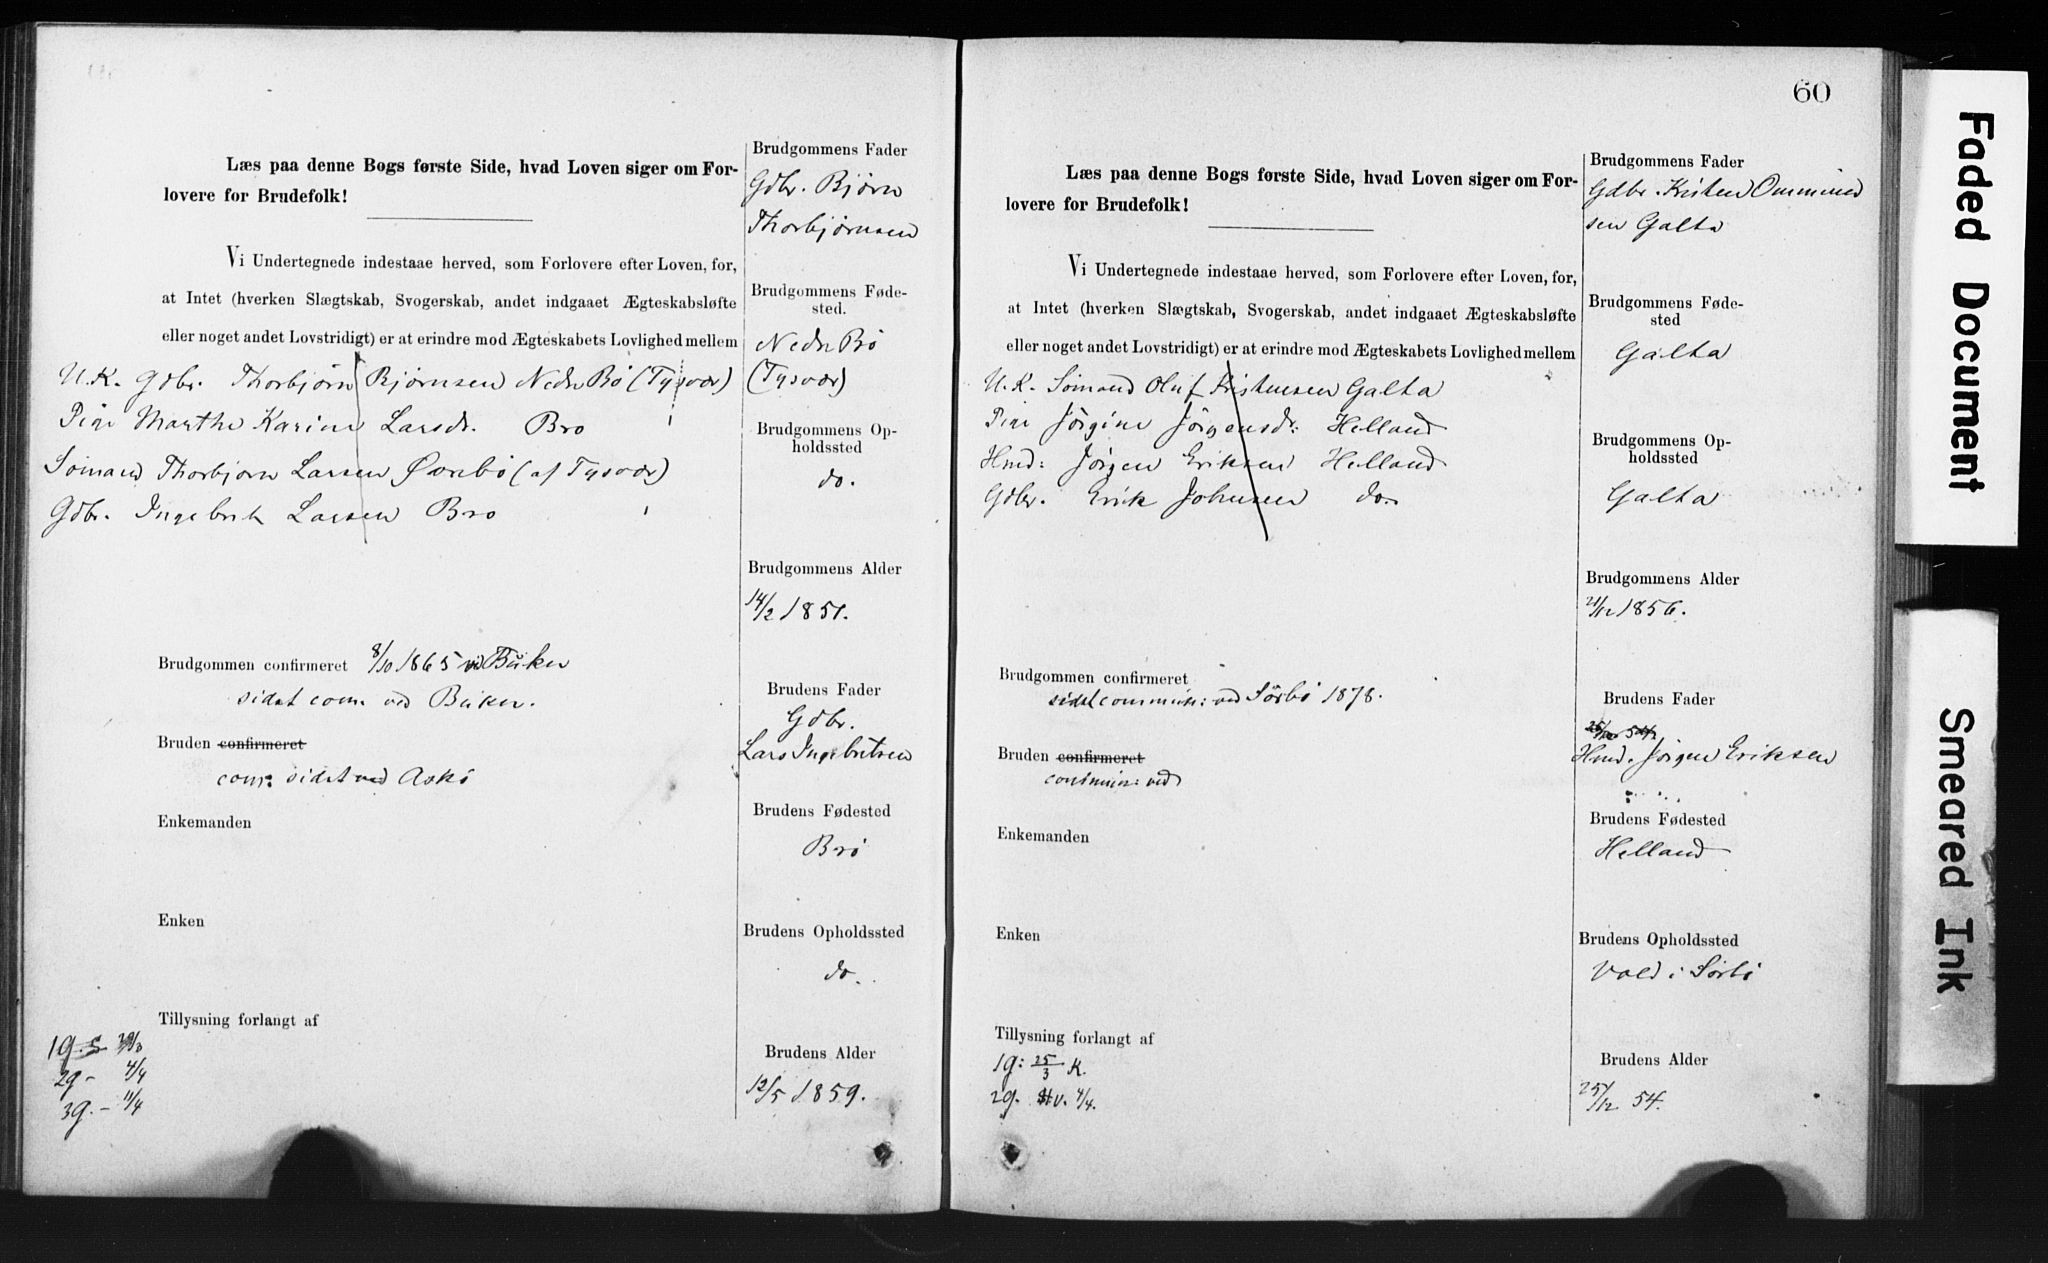 Læs paa denne Bogs første Side, hvad Loven siger om For-
lovere for Brudefolk!
Vi Undertegnede indestaae herved, som Forlovere efter Loven, for,
at Intet (hverken Slægtskab, Svogerskab, andet indgaaet Ægteskabsløfte
eller noget andet Lovstridigt) er at erindre mod Ægteskabets Lovlighed mellem
U.K. Gdbr. Thorbjørn Bjørnsen Nedr Bø (Tysvær)
Pige Marthe Karine Larsdr. Bro
Sømand Thorbjørn Larsen (af Tysvær)
Gdbr. Ingebrik Larsen Bro
Brudgommen confirmeret 8/10 1865 ved
sidst com. ved
Bruden confirmeret
com: sidst ved Askø
Enkemanden
Enken
Tillysning forlangt af
1g.
2g - 4/4
3g. - 11/4
Brudgommens Fader
Gdbr. Bjørn
Thorbjørnsen
Brudgommens Føde-
sted.
Nedr Bø
(Tysvær)
Brudgommens Op-
holdssted
do.
Brudgommens Alder
14/2 1851.
Brudens Fader
Gdbr.
Lars Ingebritsen
Brudens Fødested
Bro
Brudens Opholdssted
do.
Brudens Alder
12/5 1859.
60
Læs paa denne Bogs første Side, hvad Loven siger om For-
lovere for Brudefolk!
Vi Undertegnede indestaae herved, som Forlovere efter Loven, for,
at Intet (hverken Slægtskab, Svogerskab, andet indgaaet Ægteskabsløfte
eller noget andet Lovstridigt) er at erindre mod Ægteskabets Lovlighed mellem
U.K. Sømand Oluf Kristensen Galta
Pige Jørgine Jørgensdr: Helland
Hmd: Jørgen Eriksen Helland
Gdbr. Erik Johnsen do.
Brudgommen confirmeret
sidst commun: ved Sørbø 1878.
Bruden confirmeret
commun: ved
Enkemanden
Enken
Tillysning forlangt af
1g: 25/3 K.
2g. Hv. 4/4.
Brudgommens Fader
Gdbr. Kristen Ommund
sen Galta
Brudgommens Føde-
sted
Galta
Brudgommens Op-
holdssted
Galta
Brudgommens Alder
21/12 1856.
Brudens Fader
Hmd. Jørgen Eriksen
Brudens Fødested
Helland
Brudens Opholdssted
Vold i Sørbø
Brudens Alder
25/12 54.
Faded Document
Smeared Ink